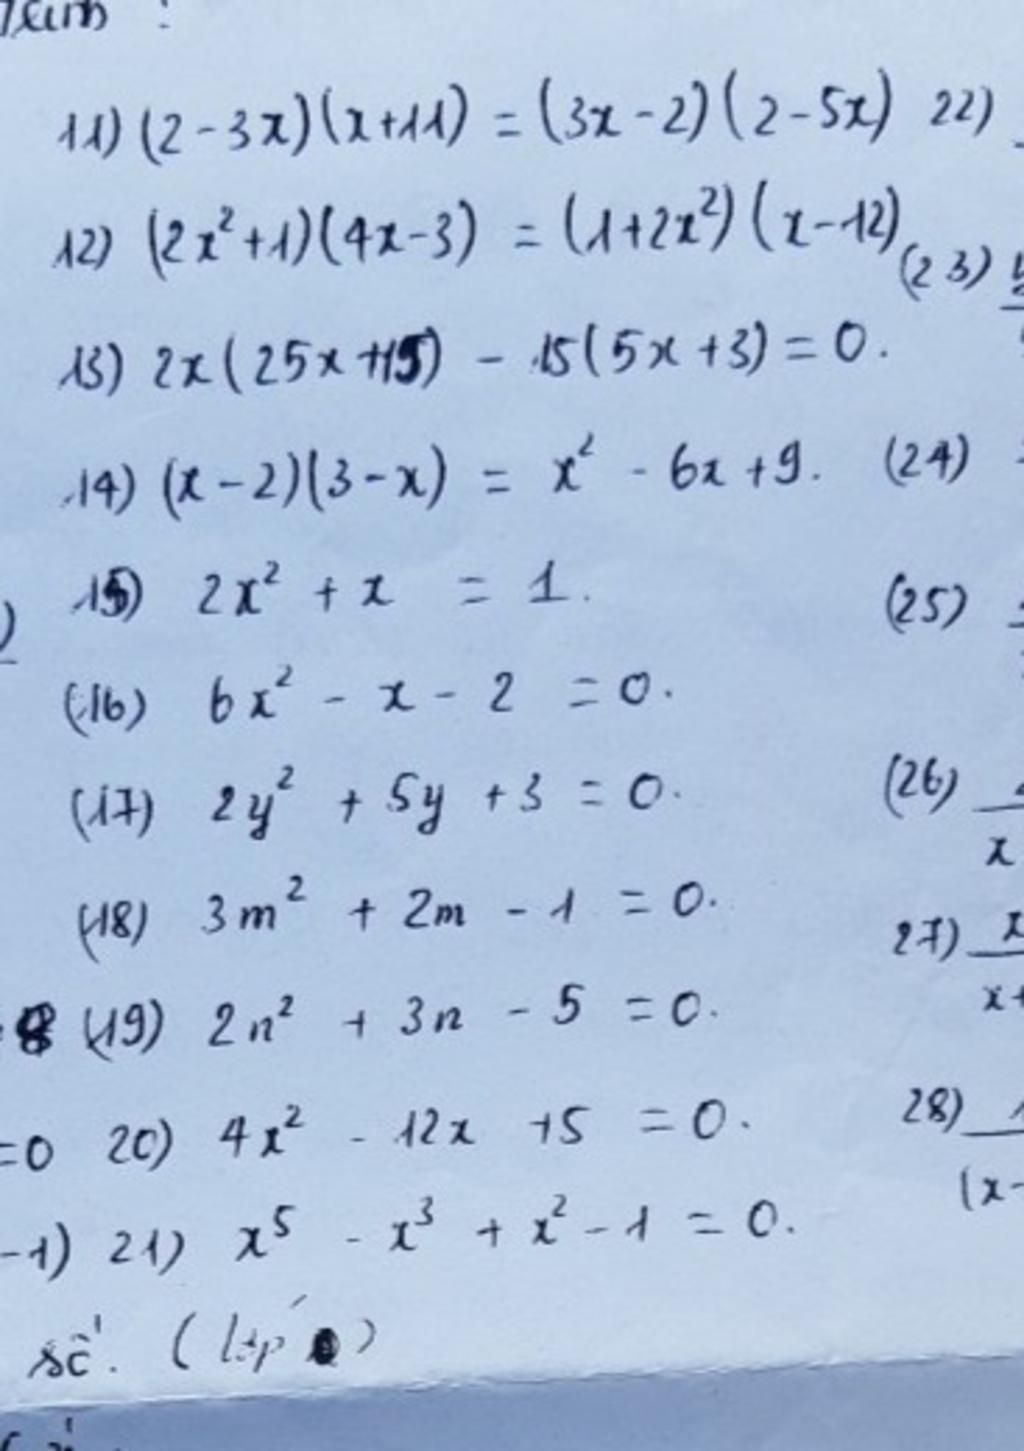 11) (2-3x)(x+11) = (3x-2)(2-5x) 22)
12) (2x²+1)(4x-3) = (1+2x²)(x-12)
(23)
13) 2x(25x+15) - 15(5x+3) = 0.
14) (x-2)(3-x) = x² - 6x + 9. (24)
15) 2x² + x = 1. (25)
(16) 6x² - x - 2 = 0.
(17) 2y² + 5y + 3 = 0. (26)
x
(18) 3m² + 2m - 1 = 0. 27) x
x+
(19) 2n² + 3n - 5 = 0.
=0 20) 4x² - 12x + 5 = 0. 28) 1
(x-
-1) 21) x⁵ - x³ + x² - 1 = 0.
số.